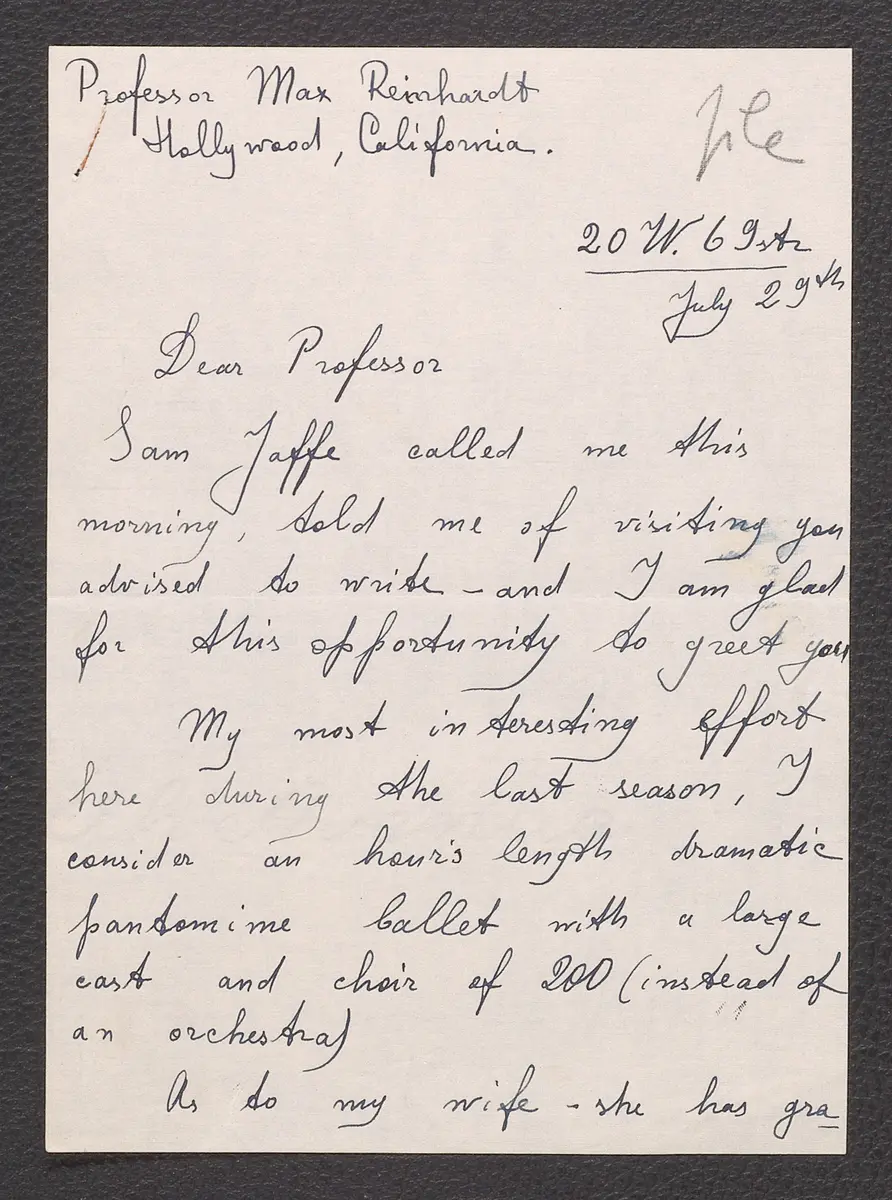 Professor Max Reinhardt
Hollywood, California.
file
20 W. 69 str
July 29th
Dear Professor
Sam Jaffe called me this
morning, told me of visiting you
advised to write – and I am glad
for this opportunity to greet you
My most interesting effort
here during the last season, I
consider an hour's length dramatic
pantomime ballet with a large
cast and choir of 200 (instead of
an orchestra)
As to my wife – she has gra